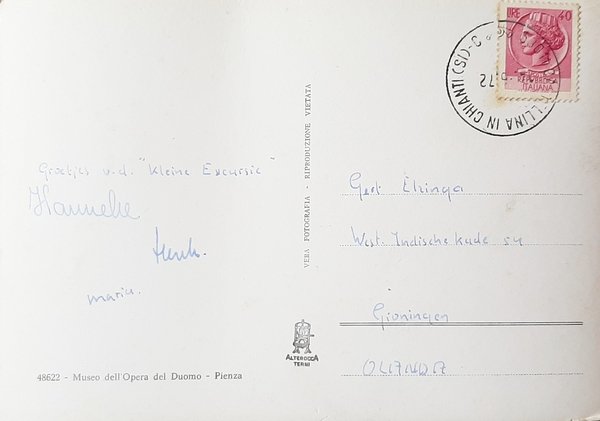 Groetjes v.d. "Kleine Excursie"
Hanneke
Henk.
maria.
48622 - Museo dell'Opera del Duomo - Pienza
VERA FOTOGRAFIA - RIPRODUZIONE VIETATA
ALTEROCCA
TERNI
LIRE 40
REPUBBLICA
ITALIANA
LLINA IN CHIANTI (SI)-C
72
Gert Elzinga
West-Indische kade 54
Groningen
OLANDA